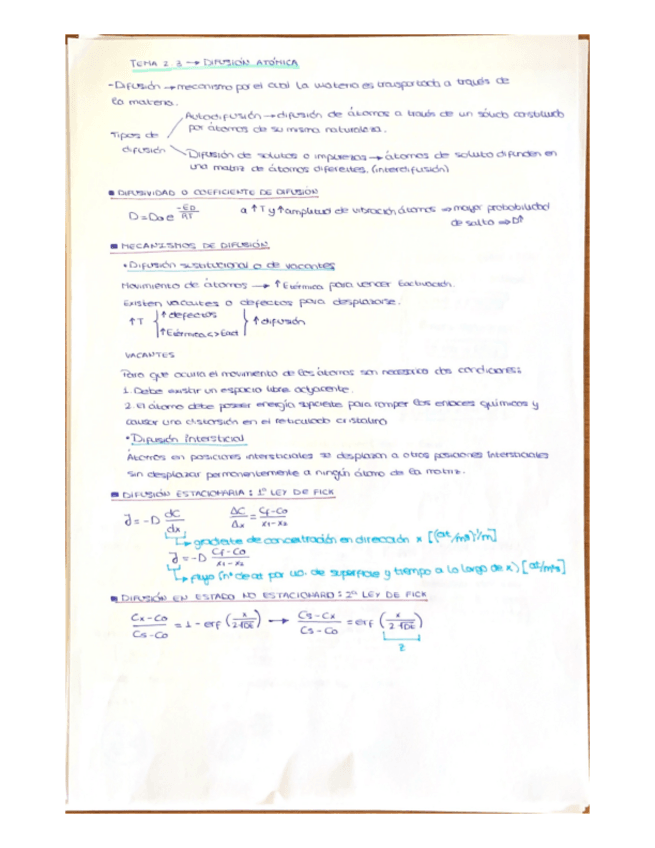 TEMA 2.3 → DIFUSIÓN ATÓMICA
-Difusión → mecanismo por el cual la materia es transportada a través de
la materia.
Autodifusión → difusión de átomos a través de un sólido constituido
por átomos de su misma naturaleza.
Tipos de
difusión
Difusión de solutos o impurezas → átomos de soluto difunden en
una matriz de átomos diferentes. (interdifusión)
■ DIFUSIVIDAD O COEFICIENTE DE DIFUSIÓN
D = D₀ e^(-ED/RT) a ↑T y ↑amplitud de vibración átomos ⇒ mayor probabilidad
de salto ⇒ D↑
■ MECANISMOS DE DIFUSIÓN
• Difusión sustitucional o de vacantes
Movimiento de átomos → ↑ Etérmica para vencer Eactivación.
Existen vacantes o defectos para desplazarse.
↑T { ↑ defectos } ↑ difusión
↑Etérmica <> Eact
VACANTES
Para que ocurra el movimiento de los átomos son necesarias dos condiciones:
1. Debe existir un espacio libre adyacente.
2. El átomo debe poseer energía suficiente para romper los enlaces químicos y
causar una distorsión en el reticulado cristalino
• Difusión intersticial
Átomos en posiciones intersticiales se desplazan a otras posiciones intersticiales
sin desplazar permanentemente a ningún átomo de la matriz.
■ DIFUSIÓN ESTACIONARIA: 1ª LEY DE FICK
J = -D dC/dx ΔC/Δx = Cf-Co/x1-x2
gradiente de concentración en dirección x [(at/m³)/m]
J = -D Cf-Co/x1-x2
flujo (nº de at por ud. de superficie y tiempo a lo largo de x) [at/m²s]
■ DIFUSIÓN EN ESTADO NO ESTACIONARIO: 2ª LEY DE FICK
Cx-Co/Cs-Co = 1 - erf (x/2√Dt) → Cs-Cx/Cs-Co = erf (x/2√Dt)
z